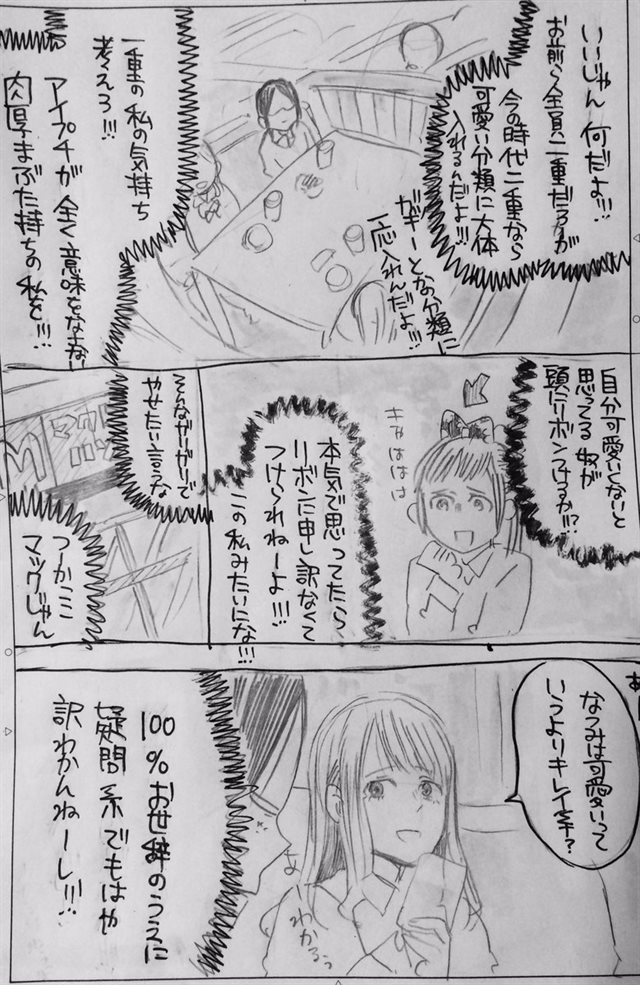 いいじゃん何だよ!!!
お前ら全員二重だろが
今の時代二重なら
可愛い分類に大体
入れるんだよ!!!
一応入れんだよ!!!
一重の私の気持ち
考えろ!!!
アイプチが全く意味をなさない
肉厚まぶた持ちの私を!!!
自分可愛いくないと
思ってる奴が
頭にリボンつけるか!!?
きゃははは
本気で思ってたら
リボンに申し訳なくて
つけられねーよ!!!
この私みたいにな!!!
そんなガリガリで
やせたい言うな
つかここ
マックじゃん
なつみは可愛いって
いうよりキレイ系?
わかるぅ
100%お世辞のうえに
疑問系でもはや
訳わかんねーし!!!